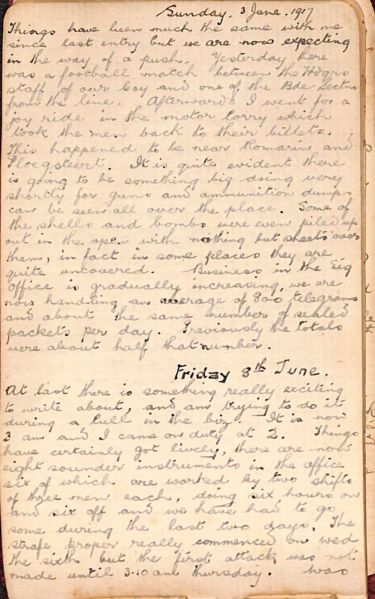 Sunday, 3 June, 1917
Things have been much the same with me
since last entry but we are now expecting
in the way of a push. Yesterday there
was a football match between the Hdqrs
staff of our Coy and one of the Bde Sections
from the line. Afterwards I went for a
joy ride in the motor lorry which
took the men back to their billets.
This happened to be near Romarin and
Ploegsteert. It is quite evident there
is going to be something big doing very
shortly for guns and ammunition dumps
can be seen all over the place. Some of
the shells and bombs were even piled up
out in the open with nothing but sheets over
them, in fact in some places they are
quite uncovered. Business in the Sig
Office is gradually increasing, we are
now handling an average of 800 telegrams
and about the same number of sealed
packets per day. Previously the totals
were about half that number.
Friday 8th June.
At last there is something really exciting
to write about, and am trying to do it
during a lull in the biz. It is now
3 am and I came on duty at 2. Things
have certainly got lively, there are now
eight sounder instruments in the office
six of which are worked by two shifts
of three men each, doing six hours on
and six off and we have had to go
some during the last two days. The
strafe proper really commenced on wed
the sixth but the first attack was not
made until 3.10 am Thursday. was